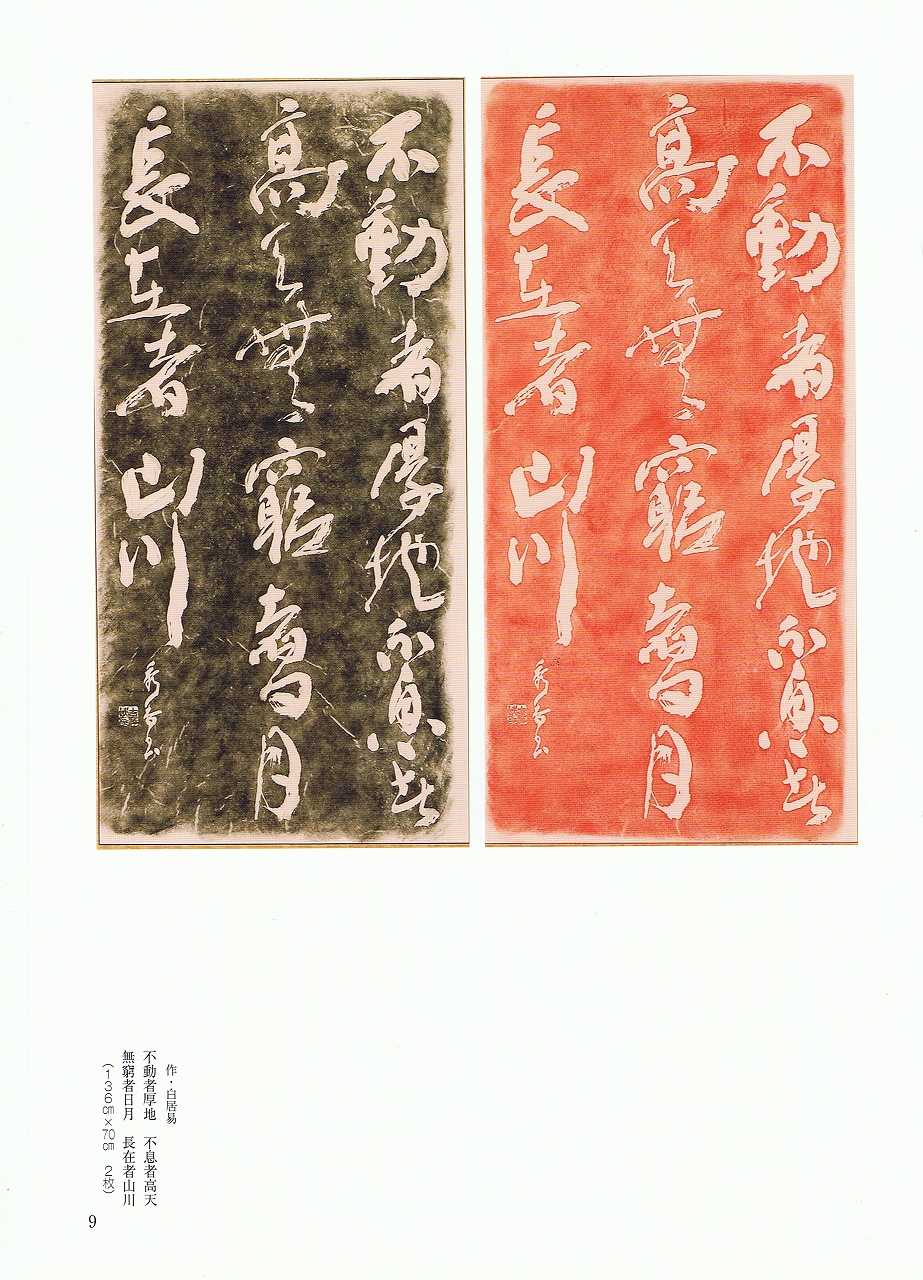 不動者厚地不息者
高天無窮者日月
長在者山川
不動者厚地不息者
高天無窮者日月
長在者山川
作・白居易
不動者厚地　不息者高天
無窮者日月　長在者山川
(136㎝×70㎝　2枚)
9